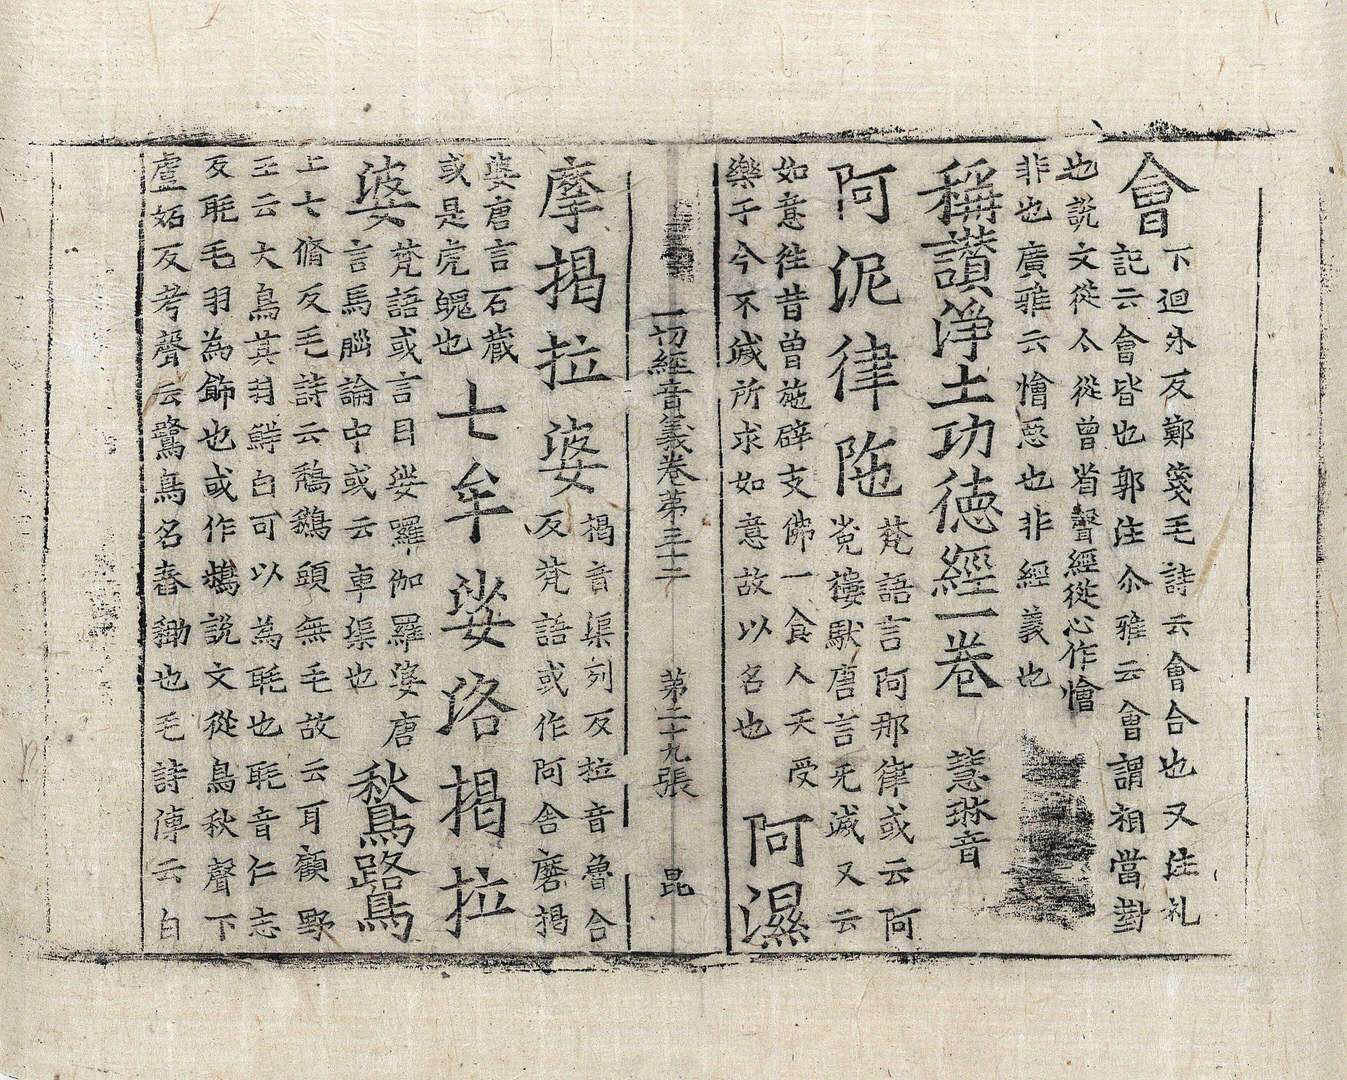 會下迴外反鄭箋毛詩云會合也又注礼
記云會皆也郭注尒雅云會謂相當對
也說文從亼從曾省聲經從心作懀
非也廣雅云懀惡也非經義也
稱讚淨土功德經一卷 慧琳音
阿泥律陁梵語言阿那律或云阿
㝹樓馱唐言无滅又云
如意往昔曾施辟支佛一食人天受
樂于今不滅所求如意故以名也
阿濕
一切經音義卷第三十二 第二十九張 昆
摩揭拉婆揭音渠列反拉音魯合
反梵語或作阿舍磨揭
婆唐言石藏
或是虎魄也
七牟娑洛揭拉
婆梵語或言目娑羅伽羅婆唐
言馬腦論中或云車渠也
鶖鷺
上七脩反毛詩云鵚鶖頭無毛故云耳顧野
王云大鳥其羽鮮白可以為毦也毦音仁志
反毦毛羽為飾也或作䳋說文從鳥秋聲下
盧妬反考聲云鷺鳥名舂鋤也毛詩傳云白